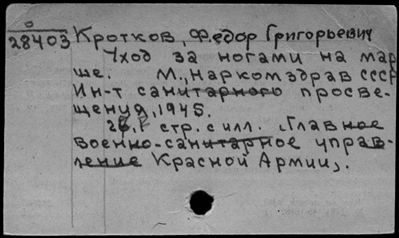 28403 Кротков, Федор Григорьевич
Уход за ногами на мар
ше. М., Наркомздрав СССР
Ин-т санитарного просве-
щения, 1945.
стр. с илл. "Главное
военно-санитарное управ-
ление Красной Армии".